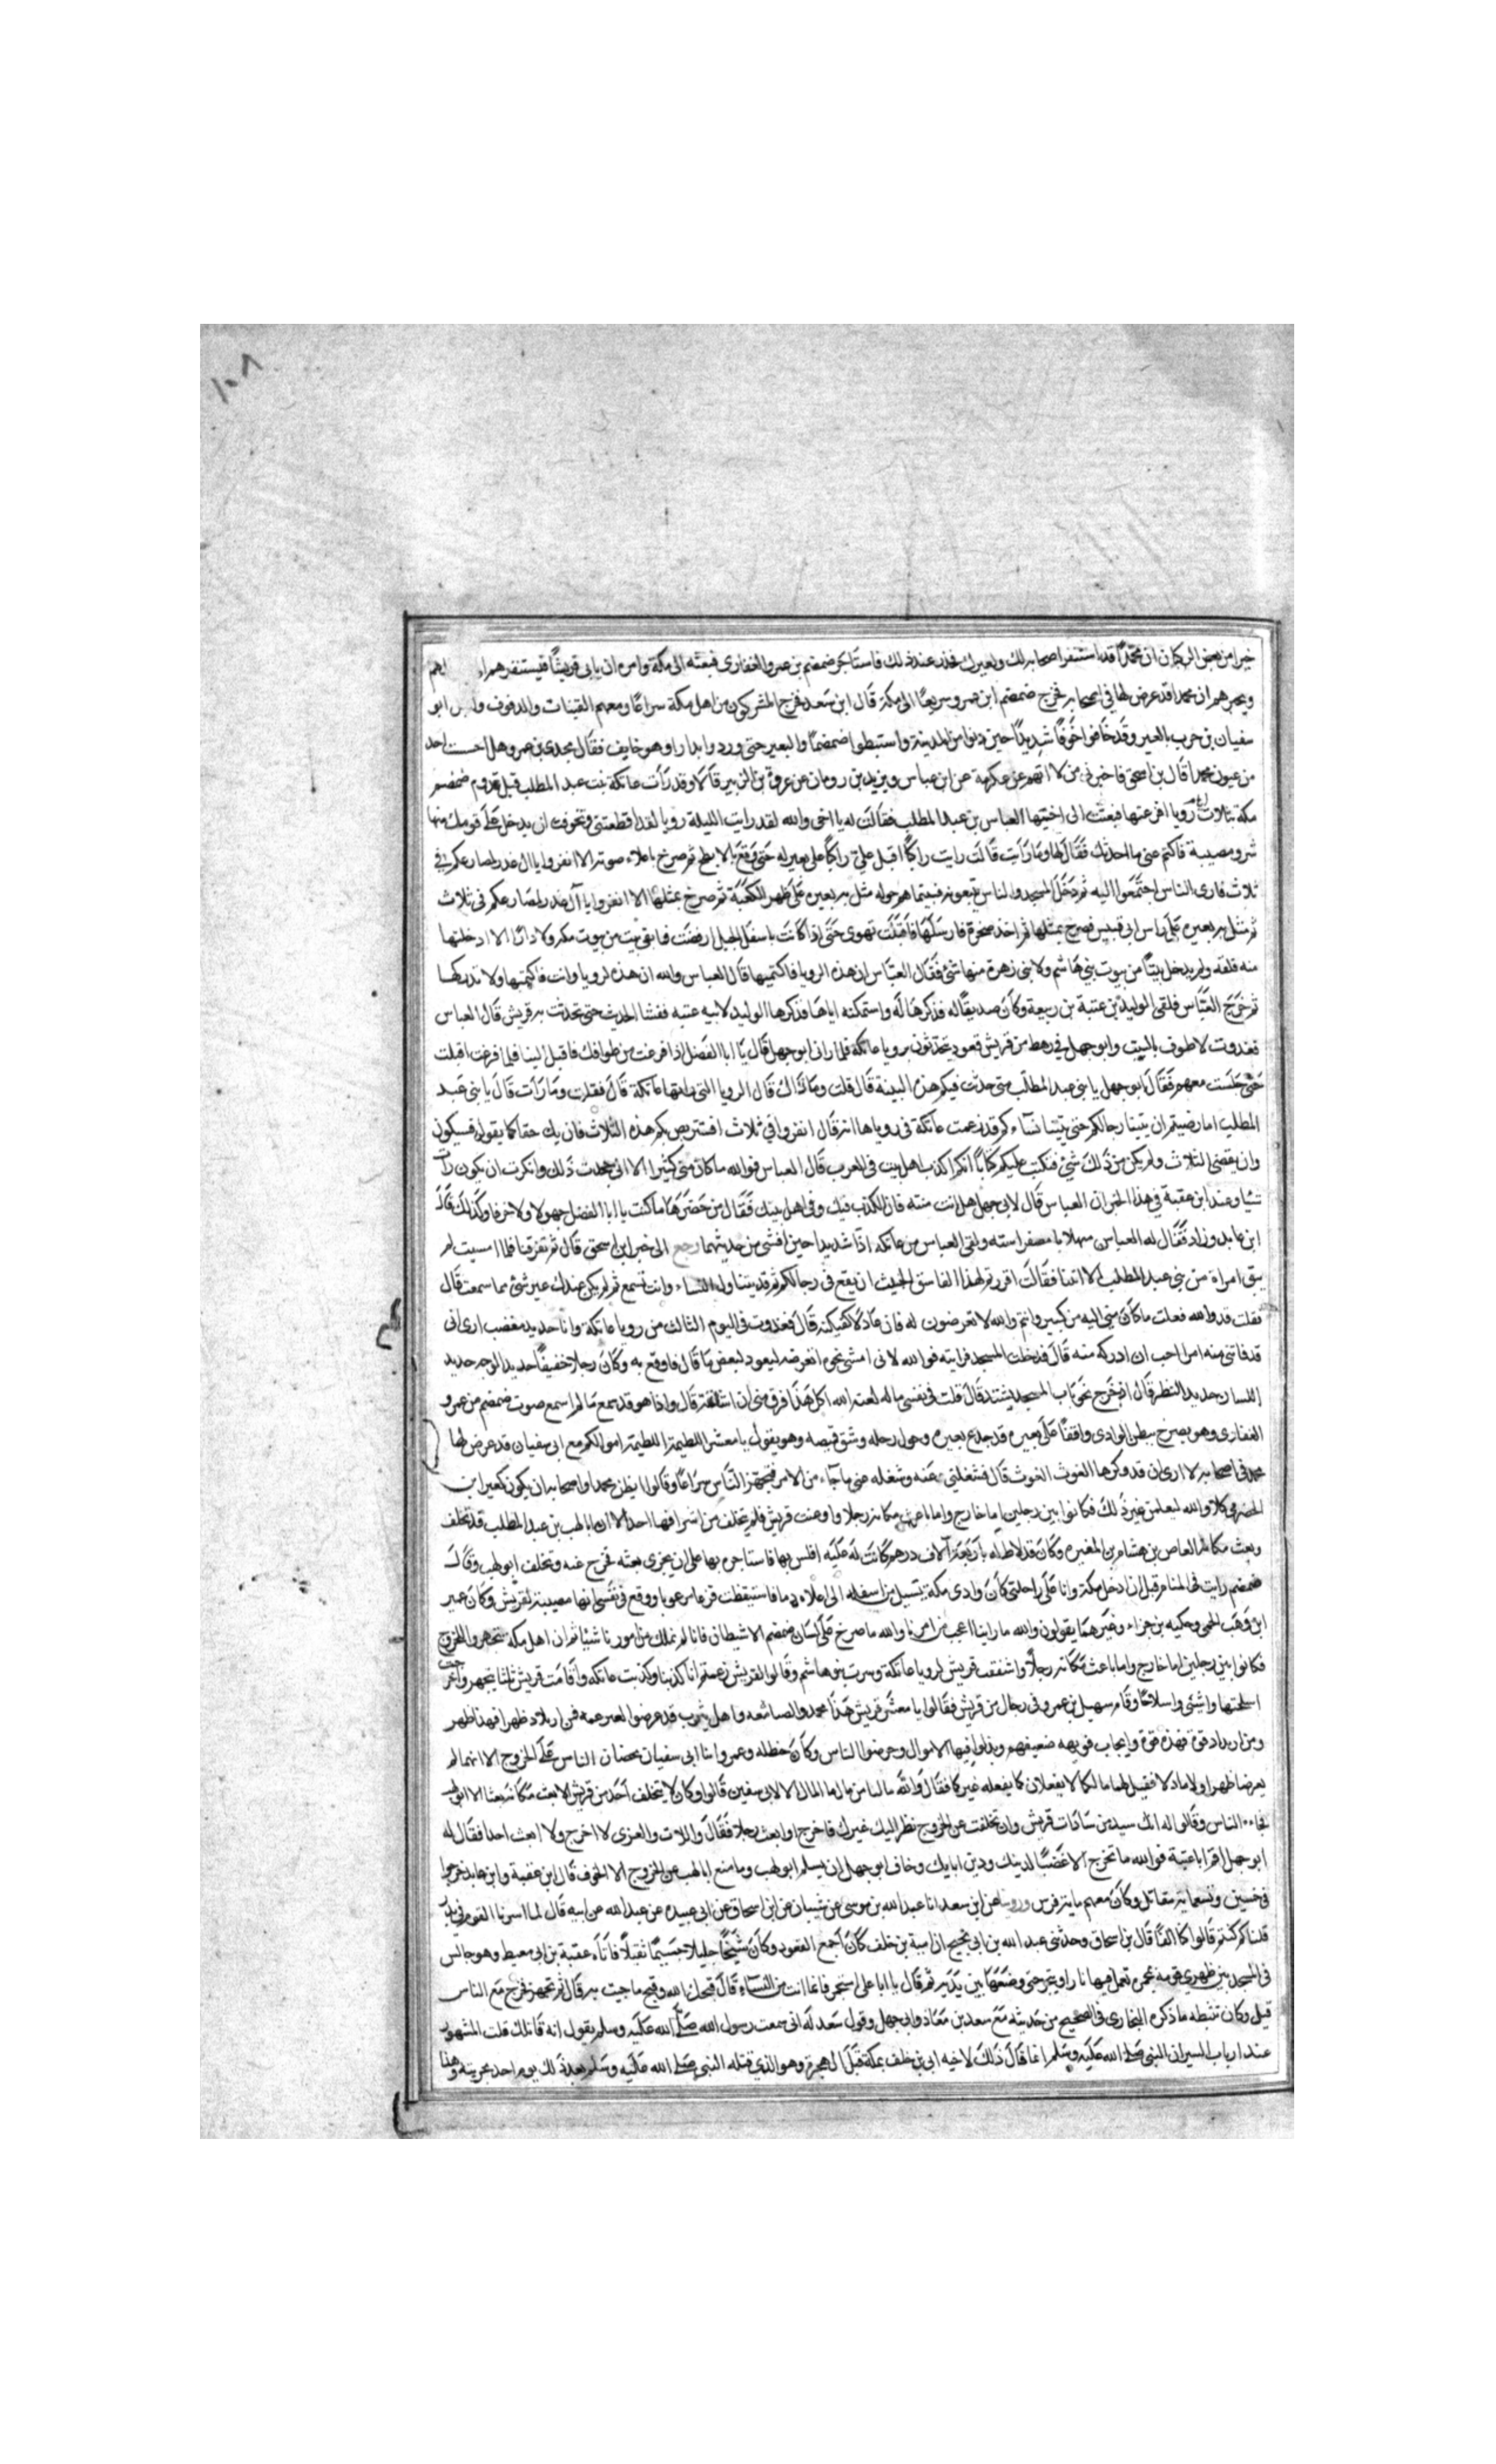 ١٠٨
خبرا من بعض الركبان ان محمدا قد استنفر اصحابه لك ولعيرك فحذر عند ذلك فاستاجر ضمضم بن عمرو الغفارى فبعثه الى مكة وامره ان ياتى قريشا فيستنفرهم الى
ويخبرهم ان محمدا قد عرض لها في اصحابه فخرج ضمضم ابن عمرو سريعا الى مكة قال ابن سعد فخرج المشركون من اهل مكة سراعا ومعهم القينات والدفوف واقبل ابو
سفيان بن حرب بالعير وقد خافوا خوفا شديدا حين دنوا من المدينة واستبطوا ضمضما والنفير حتى ورد وا بدرا وهو خايف فقال لمجدى بن عمرو هل احست احد
من عيون محمد قال بن اسحق فاخبرنى من لا اتهم عن عكرمة عن ابن عباس ويزيد بن رومان عن عروة بن الزبير قالا وقد رات عاتكة بنت عبد المطلب قبل قدوم ضمضم
مكة بثلاث رويا افزعتها فبعثت الى اخيها العباس بن عبد المطلب فقالت له يا اخى والله لقد رايت الليلة رويا لقد افظعتنى وتخوفت ان يدخل على قومك منها
شر ومصيبة فاكتم عنى ما احدثك فقال لها وما رايت قالت رايت راكبا اقبل على بعير له حتى وقف بالابطح ثم صرخ باعلاء صوته الا انفروا يا ال غدر لمصارعكم في
ثلاث فارى الناس اجتمعوا اليه ثم دخل المسجد والناس يتبعونه فبينما هم حوله مثل به بعيره على ظهر الكعبة ثم صرخ بمثلها الا انفروا يا آل غدر لمصارعكم فى ثلاث
ثم مثل به بعيره على راس ابى قبيس فصرخ بمثلها ثم اخذ صخرة فارسلها فاقبلت تهوى حتى اذا كانت باسفل الجبل ارفضت فما بقى بيت من بيوت مكة ولا دار الا دخلتها
منه فلقة ولم يدخل بيتا من بيوت بني هاشم ولا بنى زهرة منها شئ فقال العباس ان هذه الرويا فاكتميها قال العباس والله ان هذه لرويا وانت فاكتميها ولا تذكرها
ثم خرج العباس فلقى الوليد بن عتبة بن ربيعة وكان صديقا له فذكرها له واستكتمه اياها فذكرها الوليد لابيه عتبه ففشا الحديث حتى تحدثت به قريش قال العباس
فغدوت لاطوف بالبيت وابو جهل في رهط من قريش قعود يتحدثون برويا عاتكة فلما رانى ابو جهل قال يا ابا الفضل اذا فرغت من طوافك فاقبل الينا فلما فرغت اقبلت
حتى جلست معهم فقال ابو جهل يا بنى عبد المطلب متى حدثت فيكم هذه البنية قال قلت وما ذاك قال الرويا التى راتها عاتكة قال فقلت وما رات قال يا بنى عبد
المطلب اما رضيتم ان يتنبا رجالكم حتى يتنبا نساءكم قد زعمت عاتكة فى روياها انه قال انفروا في ثلاث فسنتربص بكم هذه الثلاث فان يك حقا كما يقول فسيكون
وان يقضى الثلاث ولم يكن من ذلك شيئ فنكتب عليكم كتابا انكم اكذب اهل بيت في العرب قال العباس فوالله ما كان منى كثيرا الا انى جحدت ذلك وانكرت ان يكون رات
شيا وعند ابن عقبة في هذا الخبر ان العباس قال لابى جهل هل انت منته فان الكذب فيك وفى اهل بيتك فقال من حضرهما ما كنت يا ابا الفضل جهولا ولا خرفا وكذلك قال
ابن عايد وزاد فقال له العباس مهلا يا مصفر استه ولقى العباس من عاتكه اذا شديدا حين افشى من حديثها رجع الى خبر ابن اسحق قال ثم تفرقنا فلما امسيت لم
يبق امراة من بني عبد المطلب الا اتتنا فقالت اقررتم لهذا الفاسق الخبيث ان يقع فى رجالكم ثم قد يتناول النساء وانت تسمع ثم لم يكن عندك غير شئ مما سمعت قال
فقلت قد والله فعلت ما كان منى اليه من كبير وايم والله لاتعرضون له فان عاد لاكفيكنه قال فغدوت فى اليوم الثالث من رويا عاتكة وانا حديد مغضب ارى انى
قد فاتنى منه امر احب ان ادركه منه قال فدخلت المسجد فرايته فوالله لانى امشى نحوه اتعرضه ليعود لبعض ما قال فاوقع به وكان رجلا خفيفا حديد الوجه حديد
اللسان حديد النظر قال اذ خرج نحو باب المسجد يشتد قال قلت فى نفسى ما له لعنه الله اكل هذا فرق منى ان اشاتمه قال واذا هو قد سمع ما لم اسمع صوت ضمضم من عمرو
الغفارى وهو يصرخ ببطن الوادى واقفا على بعيره قد جدع بعيره وحول رحله وشق قميصه وهو يقول يا معشر اللطيمة اللطيمة اموالكم مع ابى سفيان قد عرض لها
محمد في اصحابه لا ارى ان تدركوها الغوث الغوث قال فشغلني عنه وشغله عنى ما جاء من الامر فتجهز الناس سراعا وقالوا ايظن محمد واصحابه ان يكون كعير ابن
الحضرمى كلا والله ليعلمن غير ذلك فكانوا بين رجلين اما خارج واما باعث مكانه رجلا واوعبت قريش فلم يتخلف من اشرافها احد الا ان ابا لهب بن عبد المطلب قد تخلف
وبعث مكانه العاص بن هشام بن المغيره وكان قد لاط له باربعة آلاف درهم كانت له عليه افلس بها فاستاجره بها على ان يجزى بعثه فخرج عنه وتخلف ابو لهب وقال
ضمضم رايت فى المنام قبل ان ادخل مكة وانا على راحلتى كان وادى مكة يسيل من اسفله الى اعلاه دما فاستيقظت فزعا مرعوبا ووقع في نفسى انها مصيبة لقريش وكان عمير
ابن وهب الجمحى وحكيم بن حزام وغيرهما يقولون والله ما راينا اعجب من امرنا والله ما صرخ على لسان ضمضم الا شيطان فانا لم نملك من امورنا شيا ثم ان اهل مكة تجهزوا للخروج
فكانوا بين رجلين اما خارج واما باعث مكانه رجلا واشفقت قريش لرويا عاتكة وسرت بنو هاشم وقالوا لقريش زعمتم انا كذبنا وكذبت عاتكه واقامت قريش ثلثا يتجهز واخرجت
اسلحتها واشترى واسلاحا وقام سهيل بن عمرو فى رجال من قريش فقالوا يا معشر قريش هذا محمد والصباة معه واهل يثرب قد عرضوا لعيركم فمن اراد ظهرا فهذا ظهر
ومن اراد قوة فهذه قوة فقويهم ضعيفهم وبذلوا فيها الاموال وحرضوا الناس وكان حنظله وعمرو ابنا ابى سفيان يحضان الناس على الخروج الا انهما لم
يعرضا ظهرا ولا مالا فقيل لهما ما لكما لا يفعلان كما يفعله غيركما فقال والله مالنا من مال ما المال الا لابى سفين قالوا وكان لا يتخلف احد من قريش الا بعث مكانه بعثا الا ابو لهب
فجاءه الناس وقالوا له انك سيد من سادات قريش وان تخلفت عن الخروج نظر اليك غيرك فاخرج او ابعث رجلا فقال واللات والعزى لا اخرج ولا ابعث احدا فقال له
ابو جهل اقم ابا عتبة فوالله ما نخرج الا غضبا لدينك ودين ابايك وخاف ابو جهل ان يسلم ابو لهب وما منع ابا لهب من الخروج الا الخوف قال ابن عقبة وابن عايد خرجوا
فى خمسين وتسعماية مقاتل وكان معهم مايتا فرس وروينا عن ابن سعد انا عبد الله بن موسى عن شيبان عن ابن اسحاق عن ابى عبيده عن عبد الله عن ابيه قال لما اسرنا القوم في بدر
قلنا كم كنتم قالوا كنا الفا قال بن اسحاق وحدثنى عبد الله بن ابى نجيح ان امية بن خلف كان اجمع القعود وكان شيخا جليلا جسيما ثقيلا فاتاه عقبة بن ابى معيط وهو جالس
فى المسجد بين ظهرى قومه بمجمرة تحملها فيها نار ومجمر حتى وضعها بين يديه ثم قال يا ابا على استجمر فانما انت من النساء قال قبحك الله وقبح ماجيت به قال ثم تجهز فخرج مع الناس
قيل وكان تثبطه ما ذكره البخارى فى الصحيح من حديثه مع سعد بن معاذ وابى جهل وقول سعد له انى سمعت رسول الله صلى الله عليه وسلم يقول انه قاتلك قلت المشهور
عند ارباب السير ان النبي صلى الله عليه وسلم انما قال ذلك لاخيه ابى بن خلف بمكة قبل الهجرة وهو الذى قتله النبى صلى الله عليه وسلم بعد ذلك يوم احد بحربته وهنا